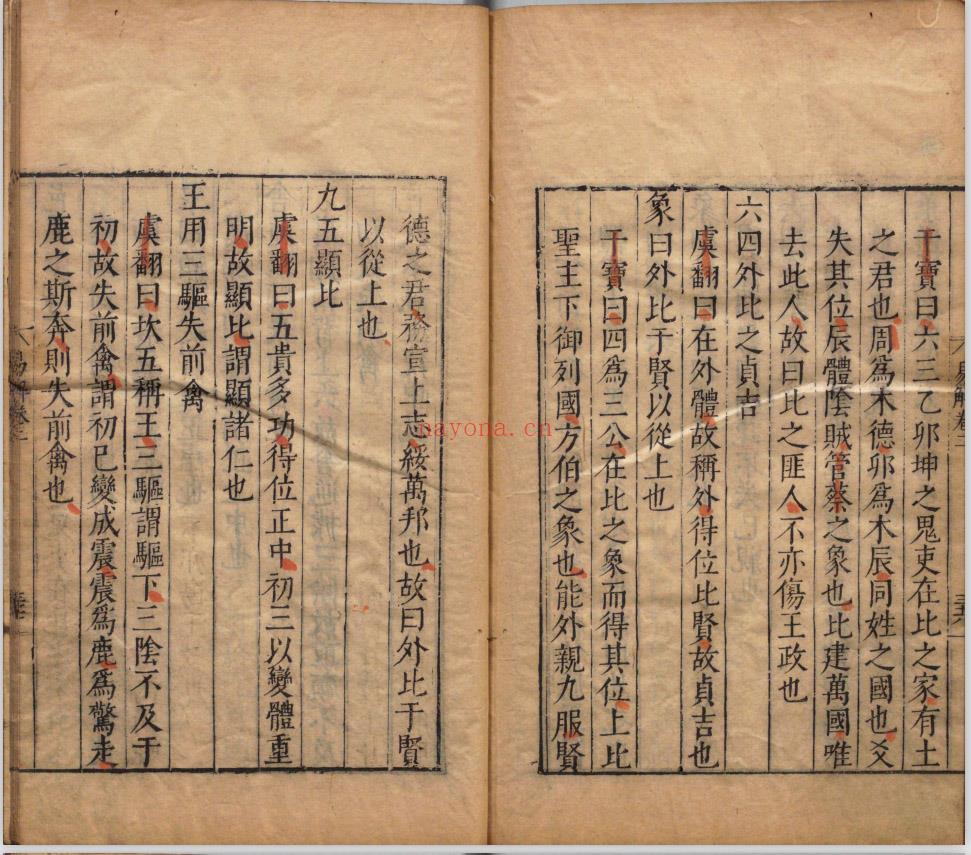 干寶曰六三乙卯坤之鬼吏在比之家有土
之君也周爲木德卯爲木辰同姓之國也爻
失其位辰體陰賊管蔡之象也比建萬國唯
去此人故曰比之匪人不亦傷王政也
六四外比之貞吉
虞翻曰在外體故稱外得位比賢故貞吉也
象曰外比于賢以從上也
干寶曰四爲三公在比之象而得其位上比
聖主下御列國方伯之象也能外親九服賢
德之君務宣上志綏萬邦也故曰外比于賢
以從上也
九五顯比
虞翻曰五貴多功得位正中初三以變體重
明故顯比謂顯諸仁也
王用三驅失前禽
虞翻曰坎五稱王三驅謂驅下三陰不及于
初故失前禽謂初已變成震震爲鹿爲驚走
鹿之斯奔則失前禽也
易解卷二
nayona.cn